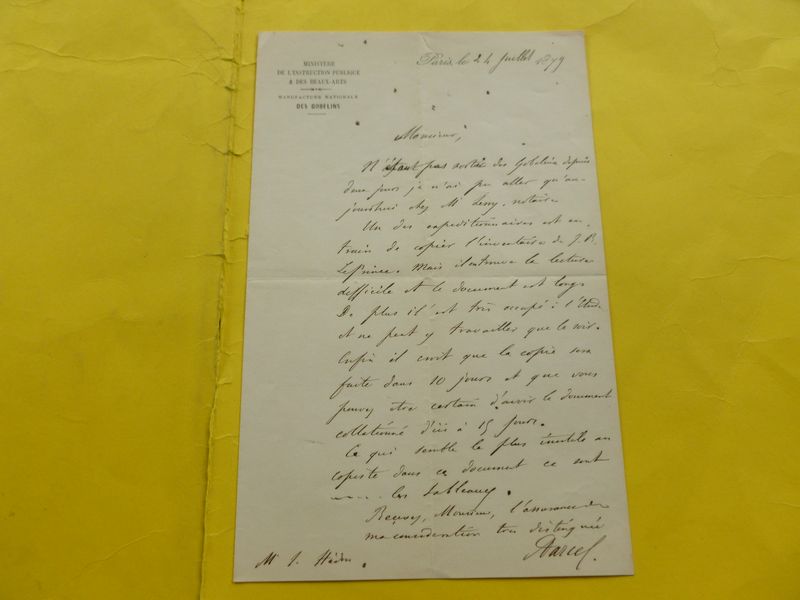 MINISTÈRE
DE L'INSTRUCTION PUBLIQUE
& DES BEAUX-ARTS
MANUFACTURE NATIONALE
DES GOBELINS
Paris, le 24 Juillet 1879
Monsieur,
N'étant pas sorti des Gobelins depuis
deux jours je n'ai pu aller qu'au-
jourdhui chez Mr notaire
Un des expeditionnaires est en
train de copier l'inventaire de J. B.
LePrince. Mais il en trouve la lecture
difficile et le document est long.
De plus il est très occupé à l'Etude
et ne peut y travailler que le soir.
Enfin il croit que la copie sera
faite dans 10 jours et que vous
pouvez être certain d'avoir le document
collationné d'ici à 15 jours.
Ce qui semble le plus inutile au
copiste dans ce document ce sont
les tableaux.
Recevez, Monsieur, l'assurance de
ma consideration très distinguée
Darcel.
Mr J. Hédou